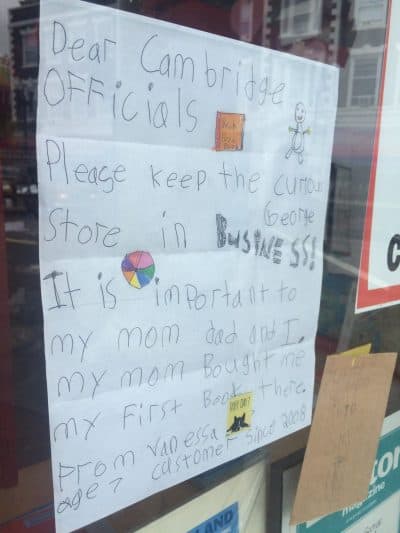 Dear Cambridge
OFFicials
Please keep the curiou
George
Store in BusiNESS!
It is important to
my mom dad and I.
my mom Bought me
my First Book there.
From Vanessa
age 7 customer since 2008
magazine